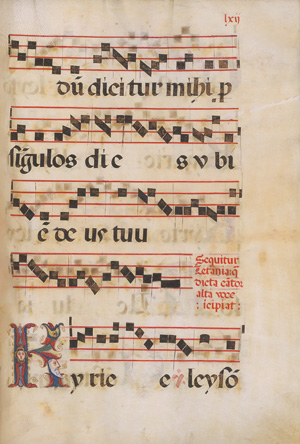 lxij
dū dicitur mihi, p
sīgulos dies ubi
ē deus tuus
Sequitur
Letania: q
dicta cāto
alta voce
icipiat:
Kyrie e leysō